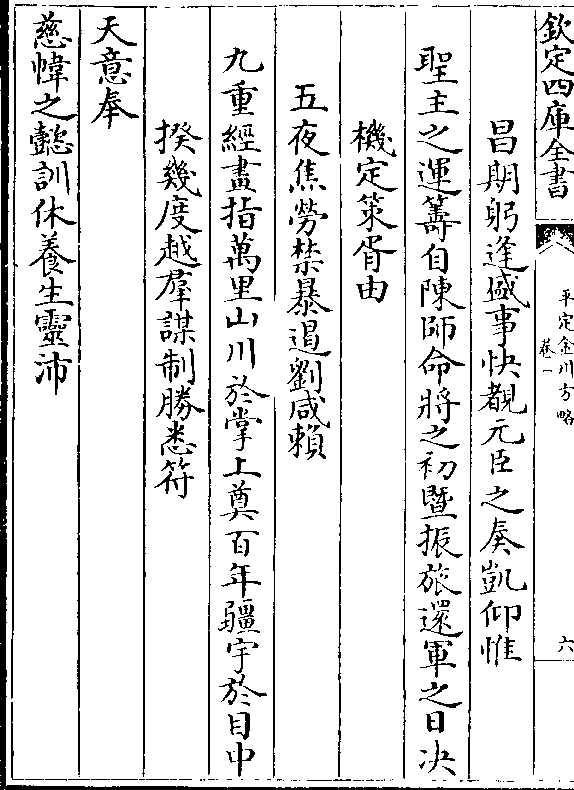 欽定四庫全書
平定金川方略
卷一
六
昌期躬逢盛事快覩元臣之奏凱仰惟
聖主之運籌自陳師命將之初暨振旅還軍之日决
機定策胥由
五夜焦勞禁暴遏劉咸賴
九重經畫指萬里山川於掌上奠百年疆宇於目中
揆幾度越羣謀制勝悉符
天意奉
慈幃之懿訓休養生靈沛